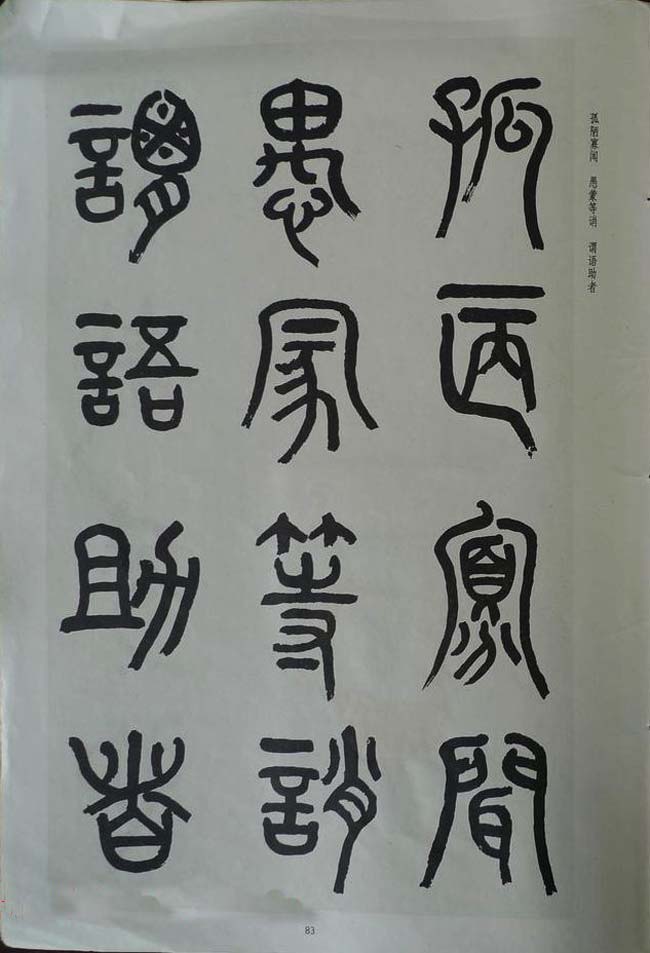 孤陋寡闻　愚蒙等诮　谓语助者
孤陋寡聞
愚蒙等誚
謂語助者
83